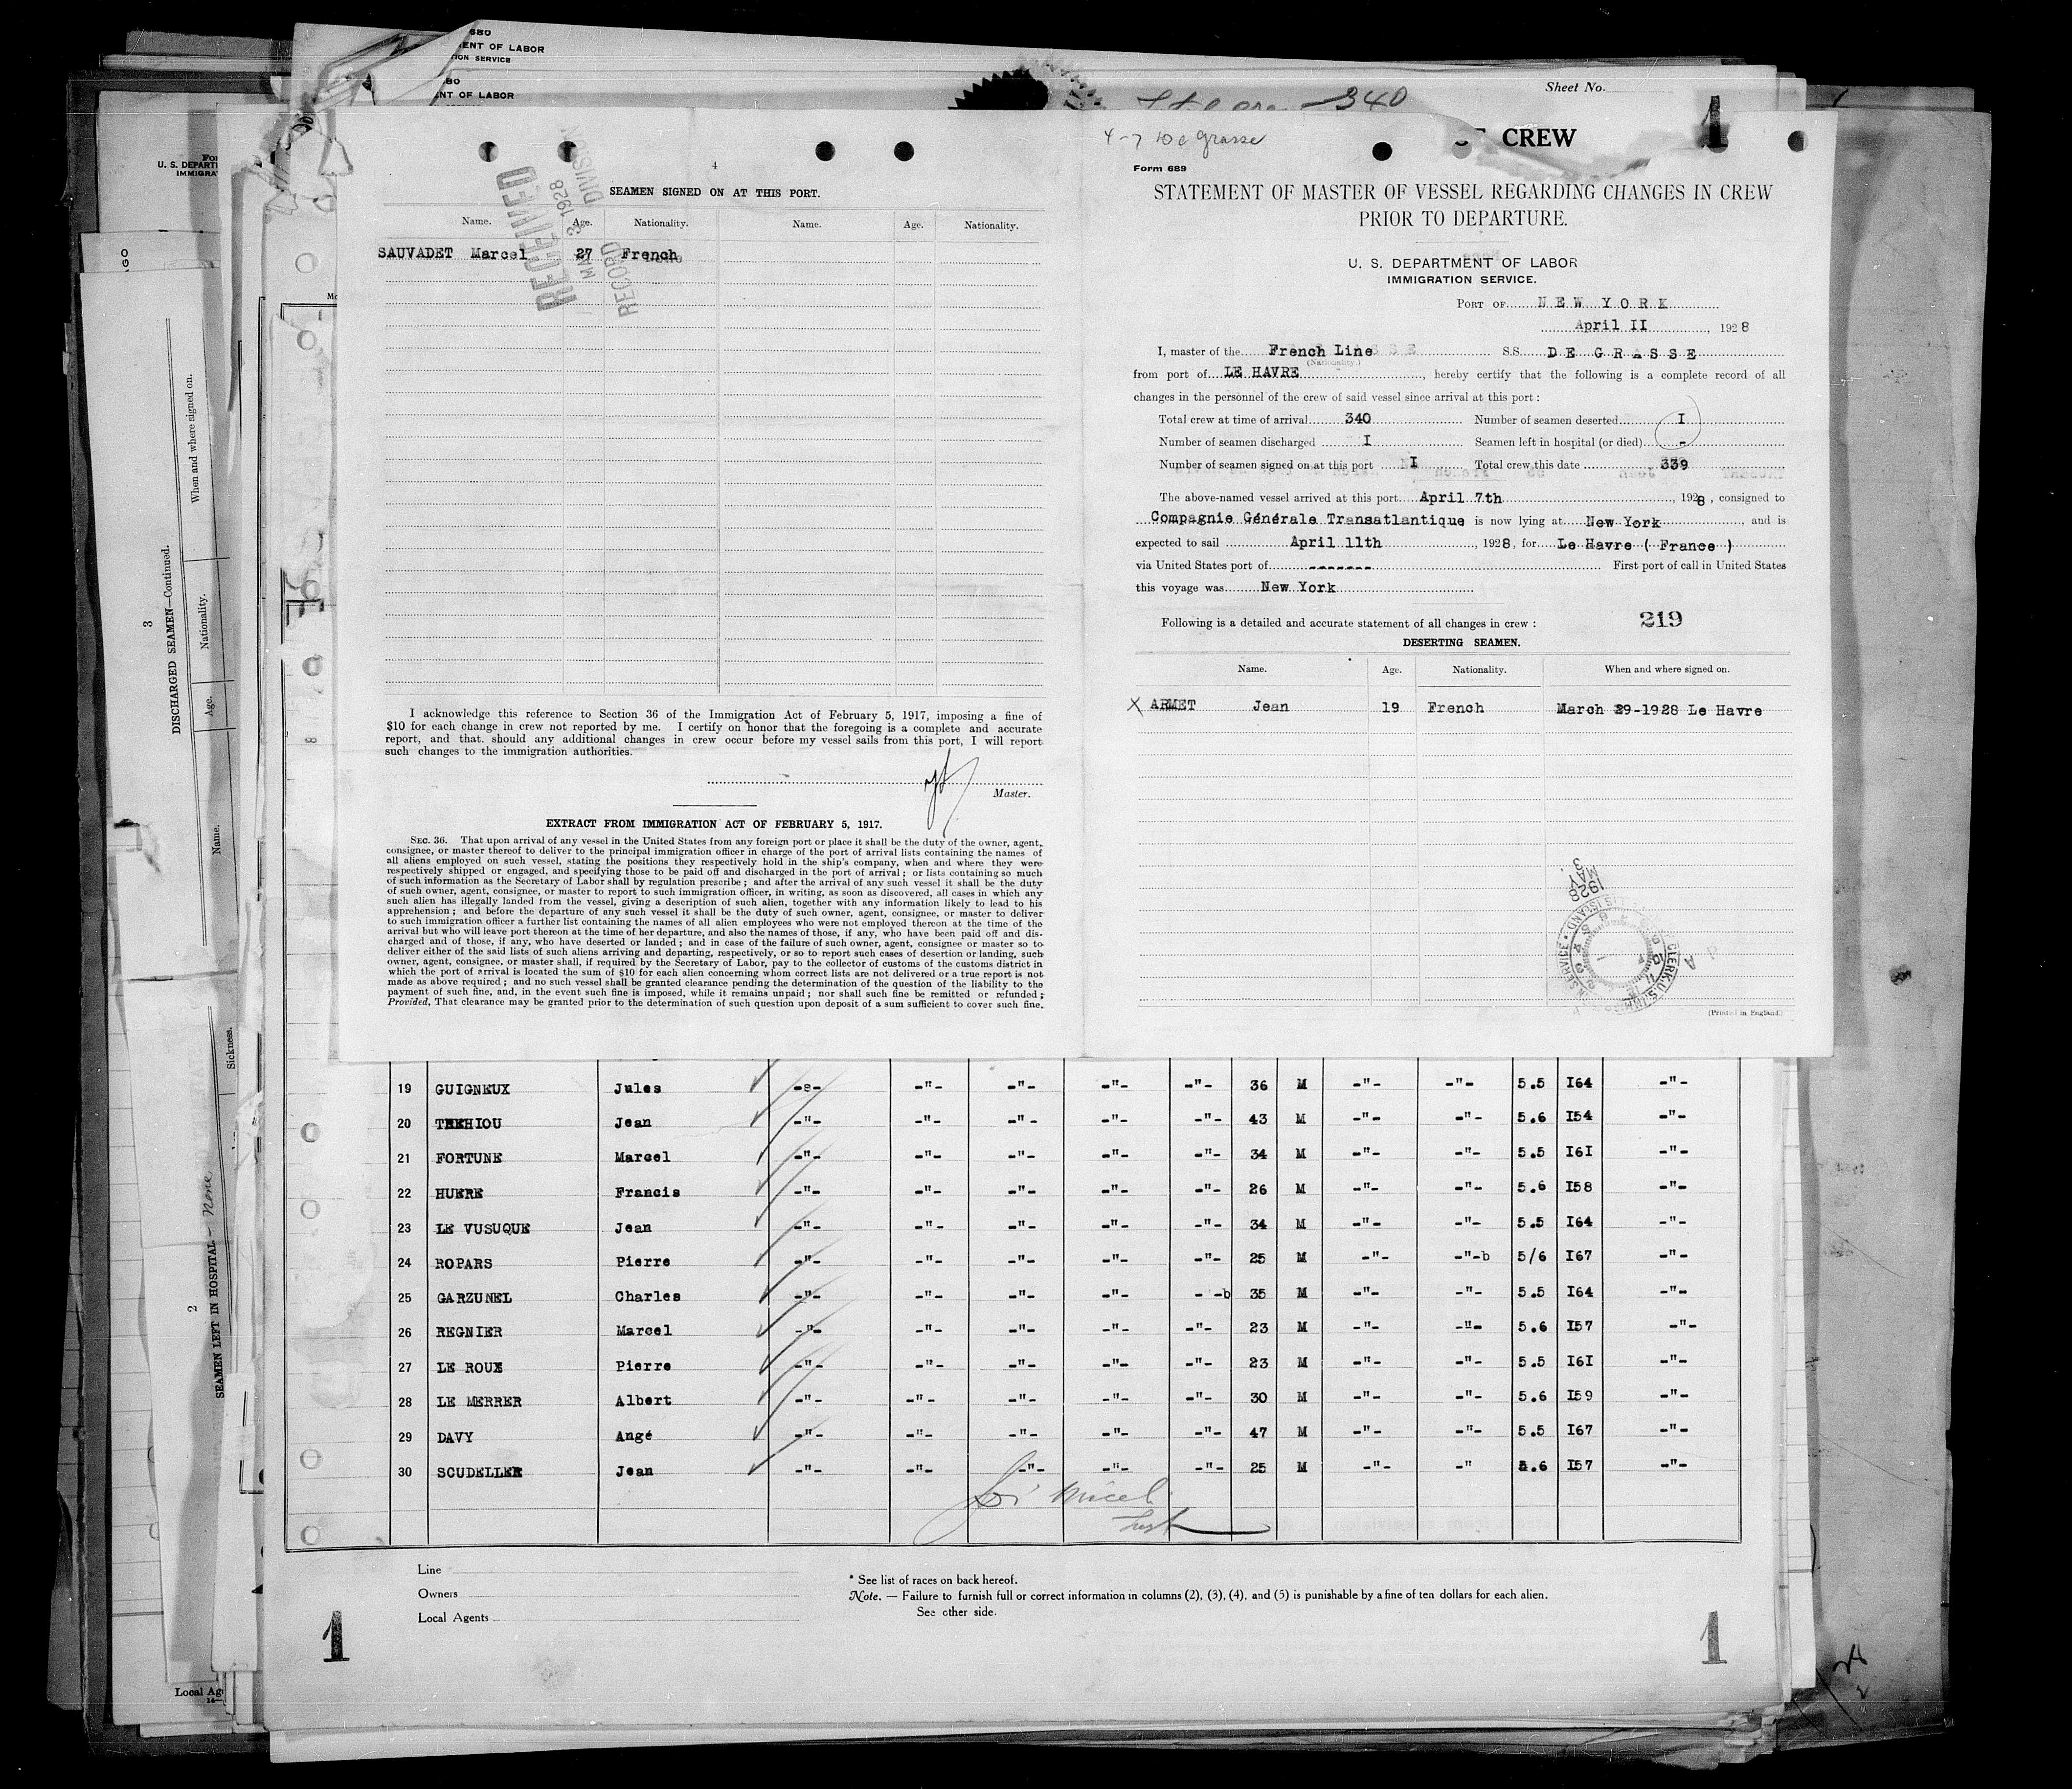 680
ENT OF LABOR
ION SERVICE
680
ENT OF LABOR
340
Sheet No.
1
CREW
U. S. DEPART
IMMIGRA
4
SEAMEN SIGNED ON AT THIS PORT.
Name. Age. Nationality. Name. Age. Nationality.
SAUVADET Marcel 27 French
RECEIVED
MAY 3 1928
RECORD DIVISION
I acknowledge this reference to Section 36 of the Immigration Act of February 5, 1917, imposing a fine of
$10 for each change in crew not reported by me. I certify on honor that the foregoing is a complete and accurate
report, and that. should any additional changes in crew occur before my vessel sails from this port, I will report
such changes to the immigration authorities.
Master.
EXTRACT FROM IMMIGRATION ACT OF FEBRUARY 5, 1917.
SEC. 36. That upon arrival of any vessel in the United States from any foreign port or place it shall be the duty of the owner, agent,
consignee, or master thereof to deliver to the principal immigration officer in charge of the port of arrival lists containing the names of
all aliens employed on such vessel, stating the positions they respectively hold in the ship's company, when and where they were
respectively shipped or engaged, and specifying those to be paid off and discharged in the port of arrival; or lists containing so much
of such information as the Secretary of Labor shall by regulation prescribe; and after the arrival of any such vessel it shall be the duty
of such owner, agent, consignee, or master to report to such immigration officer, in writing, as soon as discovered, all cases in which any
such alien has illegally landed from the vessel, giving a description of such alien, together with any information likely to lead to his
apprehension; and before the departure of any such vessel it shall be the duty of such owner, agent, consignee, or master to deliver
to such immigration officer a further list containing the names of all alien employees who were not employed thereon at the time of the
arrival but who will leave port thereon at the time of her departure, and also the names of those, if any, who have been paid off and dis-
charged and of those, if any, who have deserted or landed; and in case of the failure of such owner, agent, consignee or master so to
deliver either of the said lists of such aliens arriving and departing, respectively, or so to report such cases of desertion or landing, such
owner, agent, consignee, or master, shall, if required by the Secretary of Labor, pay to the collector of customs of the customs district in
which the port of arrival is located the sum of $10 for each alien concerning whom correct lists are not delivered or a true report is not
made as above required; and no such vessel shall be granted clearance pending the determination of the question of the liability to the
payment of such fine, and, in the event such fine is imposed, while it remains unpaid; nor shall such fine be remitted or refunded;
Provided, That clearance may be granted prior to the determination of such question upon deposit of a sum sufficient to cover such fine.
4-7 De Grasse
Form 689
STATEMENT OF MASTER OF VESSEL REGARDING CHANGES IN CREW
PRIOR TO DEPARTURE.
U. S. DEPARTMENT OF LABOR
IMMIGRATION SERVICE.
PORT OF NEW YORK
April II, 1928
I, master of the French Line S.S. DE GRASSE
(Nationality.)
from port of LE HAVRE, hereby certify that the following is a complete record of all
changes in the personnel of the crew of said vessel since arrival at this port:
Total crew at time of arrival 340 Number of seamen deserted I
Number of seamen discharged I Seamen left in hospital (or died) -
Number of seamen signed on at this port I Total crew this date 339
The above-named vessel arrived at this port April 7th, 1928, consigned to
Compagnie Générale Transatlantique is now lying at New York, and is
expected to sail April 11th, 1928, for Le Havre ( France )
via United States port of ------- First port of call in United States
this voyage was New York
Following is a detailed and accurate statement of all changes in crew: 219
DESERTING SEAMEN.
Name. Age. Nationality. When and where signed on.
X ARMET Jean 19 French March 29-1928 Le Havre
1928 MAY 3
(Printed in England.)
3
DISCHARGED SEAMEN—Continued.
Name. Age. Nationality. When and where signed on.
2
SEAMEN LEFT IN HOSPITAL - None
Sickness.
19 GUIGNEUX Jules -e- -"- -"- -"- -"- 36 M -"- -"- 5.5 I64 -"-
20 TREHIOU Jean -"- -"- -"- -"- -"- 43 M -"- -"- 5.6 I54 -"-
21 FORTUNE Marcel -"- -"- -"- -"- -"- 34 M -"- -"- 5.5 I6I -"-
22 HUERE Francis -"- -"- -"- -"- -"- 26 M -"- -"- 5.6 I58 -"-
23 LE VUSUQUE Jean -"- -"- -"- -"- -"- 34 M -"- -"- 5.5 I64 -"-
24 ROPARS Pierre -"- -"- -"- -"- -"- 25 M -"- -"-b 5/6 I67 -"-
25 GARZUNEL Charles -"- -"- -"- -"- - -b 35 M -"- -"- 5.5 I64 -"-
26 REGNIER Marcel -"- -"- -"- -"- -"- 23 M -"- -"- 5.6 I57 -"-
27 LE ROUX Pierre -"- -"- -"- -"- -"- 23 M -"- -"- 5.5 I6I -"-
28 LE MERRER Albert -"- -"- -"- -"- -"- 30 M -"- -"- 5.6 I59 -"-
29 DAVY Angé -"- -"- -"- -"- -"- 47 M -"- -"- 5.5 I67 -"-
30 SCUDELLER Jean -"- -"- -"- -"- -"- 25 M -"- -" 5.6 I57 -"-
Line
Owners
Local Agents
* See list of races on back hereof.
Note. — Failure to furnish full or correct information in columns (2), (3), (4), and (5) is punishable by a fine of ten dollars for each alien.
See other side.
1
1
Local Ag